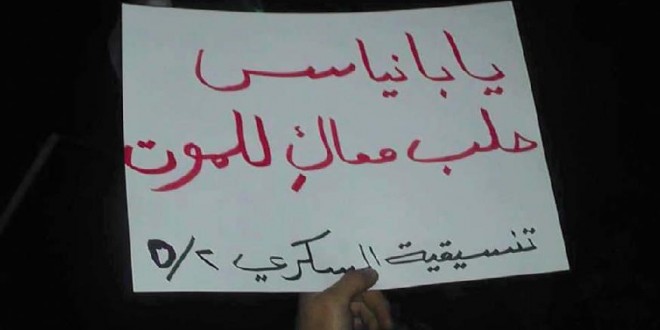 يا بانياس
حلب معاكِ للموت
تنسيقية السكري ٢/٥